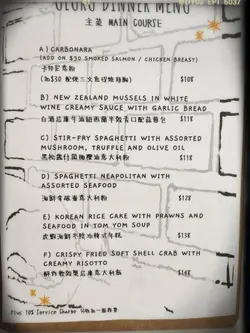 DINNER MENU
主菜 MAIN COURSE
A) CARBONARA
(ADD ON $30 SMOKED SALMON / CHICKEN BREAST)
卡邦尼意粉
$108
B) NEW ZEALAND MUSSELS IN WHITE
WINE CREAMY SAUCE WITH GARLIC BREAD
$118
C) STIR-FRY SPAGHETTI WITH ASSORTED
MUSHROOM, TRUFFLE AND OLIVE OIL
黑松露什菌橄欖油意大利粉
$118
D) SPAGHETTI NEAPOLITAN WITH
ASSORTED SEAFOOD
海鮮拿破崙意大利粉
$128
E) KOREAN RICE CAKE WITH PRAWNS AND
SEAFOOD IN TOM YOM SOUP
$138
F) CRISPY FRIED SOFT SHELL CRAB WITH
CREAMY RISOTTO
$148
Plus 10% Service Charge 另收加一服務費